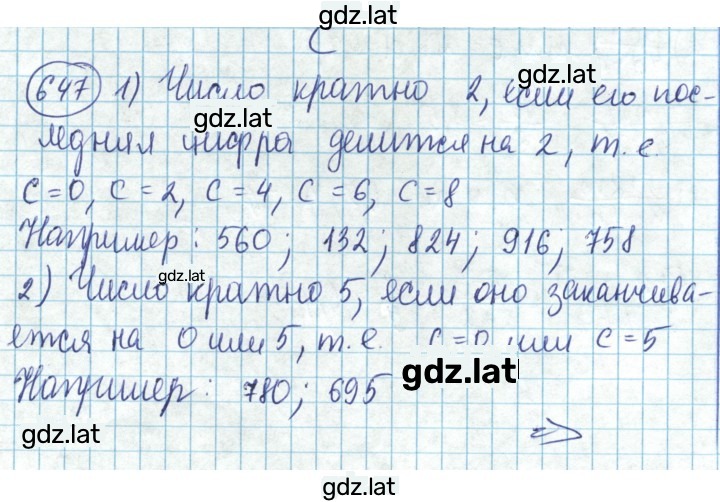 gdz.lat
С
647 1) Число кратно 2, если его пос-
gdz.lat
gdz.lat
ледняя цифра делится на 2, т.е.
С=0, С=2, С=4, С=6, С=8
Например: 560; 132; 824; 916; 758
gdz.lat
2) Число кратно 5, если оно заканчива-
ется на 0 или 5, т.е. С=0 или С=5
gdz.lat
Например: 780; 695
gdz.lat
⇒
gdz.lat